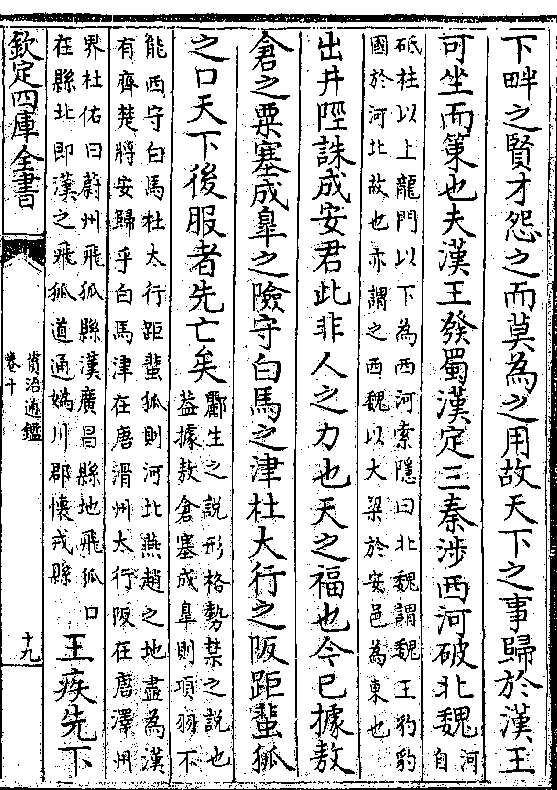 下畔之賢才怨之而莫為之用故天下之事歸於漢王
可坐而策也夫漢王發蜀漢定三秦涉西河破北魏
河
自
砥柱以上龍門以下為西河索隱曰北魏謂魏王豹豹
國於河北故也亦謂之西魏以大梁於安邑為東也
出井陘誅成安君此非人之力也天之福也今已據敖
倉之粟塞成臯之險守白馬之津杜大行之阪距蜚狐
之口天下後服者先亡矣
酈生之說形格勢禁之說也
益據敖倉塞成臯則項羽不
能西守白馬杜太行距蜚狐則河北燕趙之地盡為漢
有齊楚將安歸乎白馬津在唐滑州太行阪在唐澤州
界杜佑曰蔚州飛狐縣漢廣昌縣地飛狐口
在縣北即漢之飛狐道通媯川郡懷戎縣
王疾先下
欽定四庫全書
資治通鑑
卷十
十九